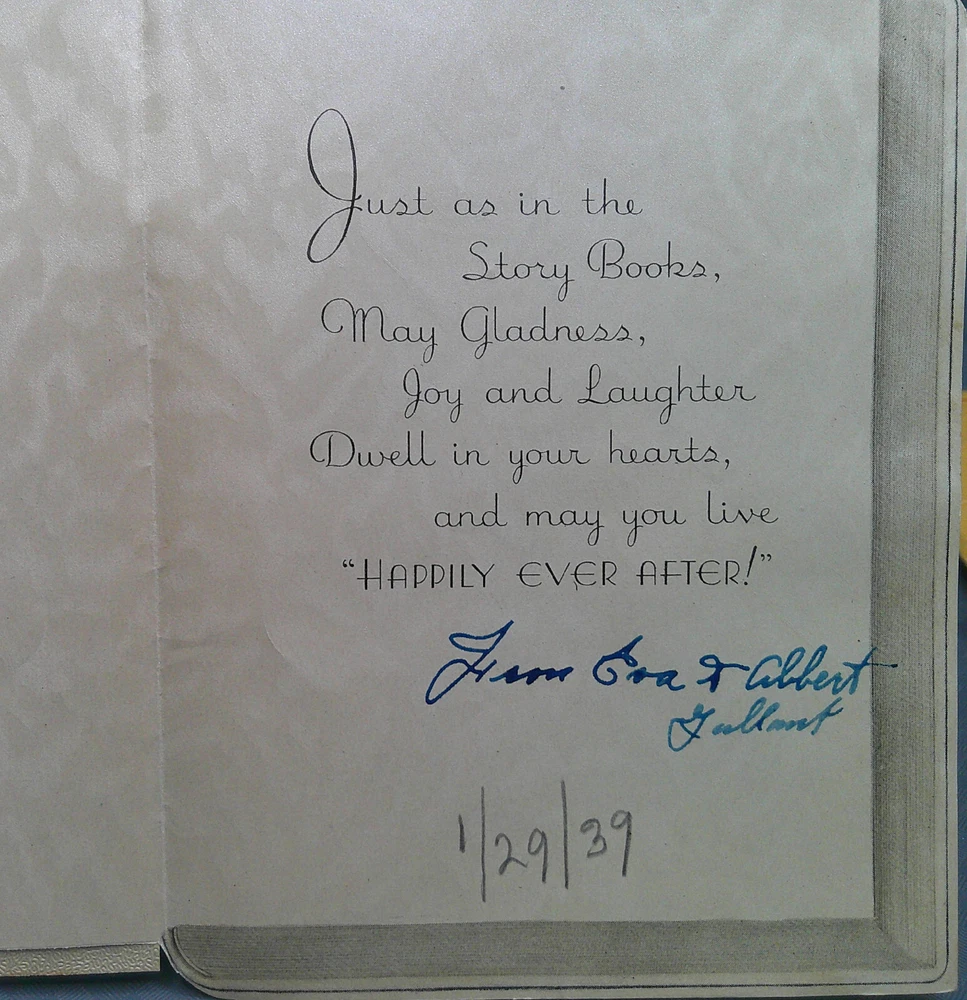 Just as in the
Story Books,
May Gladness,
Joy and Laughter
Dwell in your hearts,
and may you live
“HAPPILY EVER AFTER!”
From Eva & Albert
1/29/39